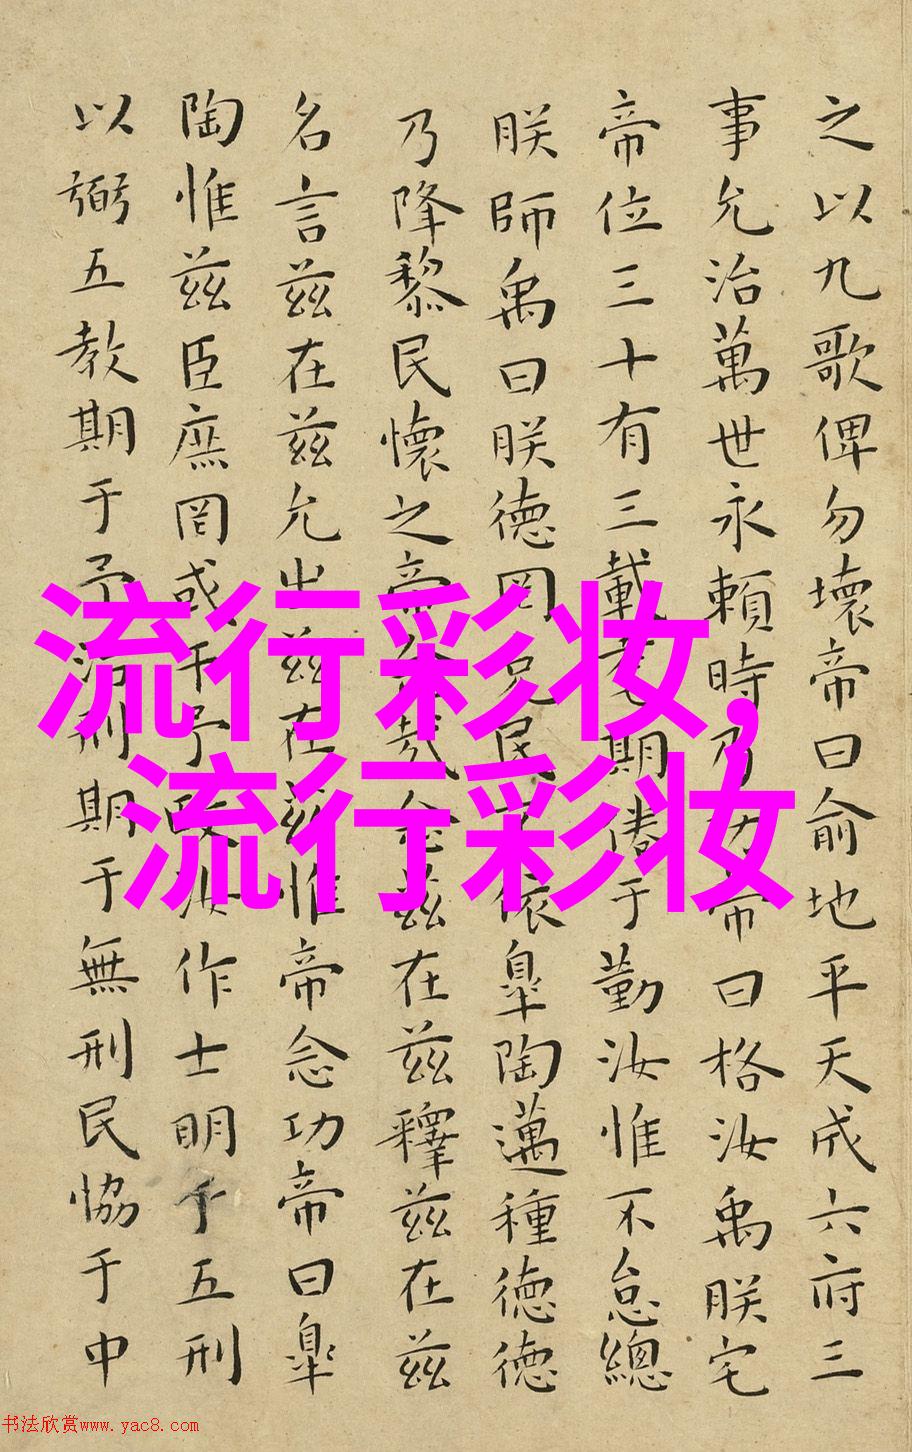 之以九歌俾勿壞帝曰俞地平天成六府三
事允治萬世永賴時乃功帝曰格汝禹朕宅
帝位三十有三載耄期倦于勤汝惟不怠總
朕師禹曰朕德罔克民不依皐陶邁種德德
乃降黎民懷之帝念哉念茲在茲釋茲在茲
名言茲在茲允出茲在茲惟帝念功帝曰皐
陶惟茲臣庶罔或干予政汝作士明于五刑
以弼五教期于予治刑期于無刑民恊于中
流行彩妆,
流行彩妆
书法欣赏www.yac8.com